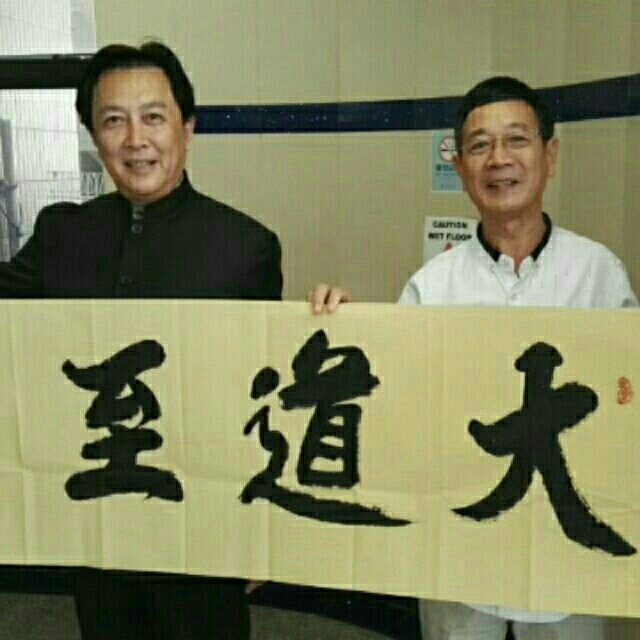 大道至
CAUTION
WET FLOOR